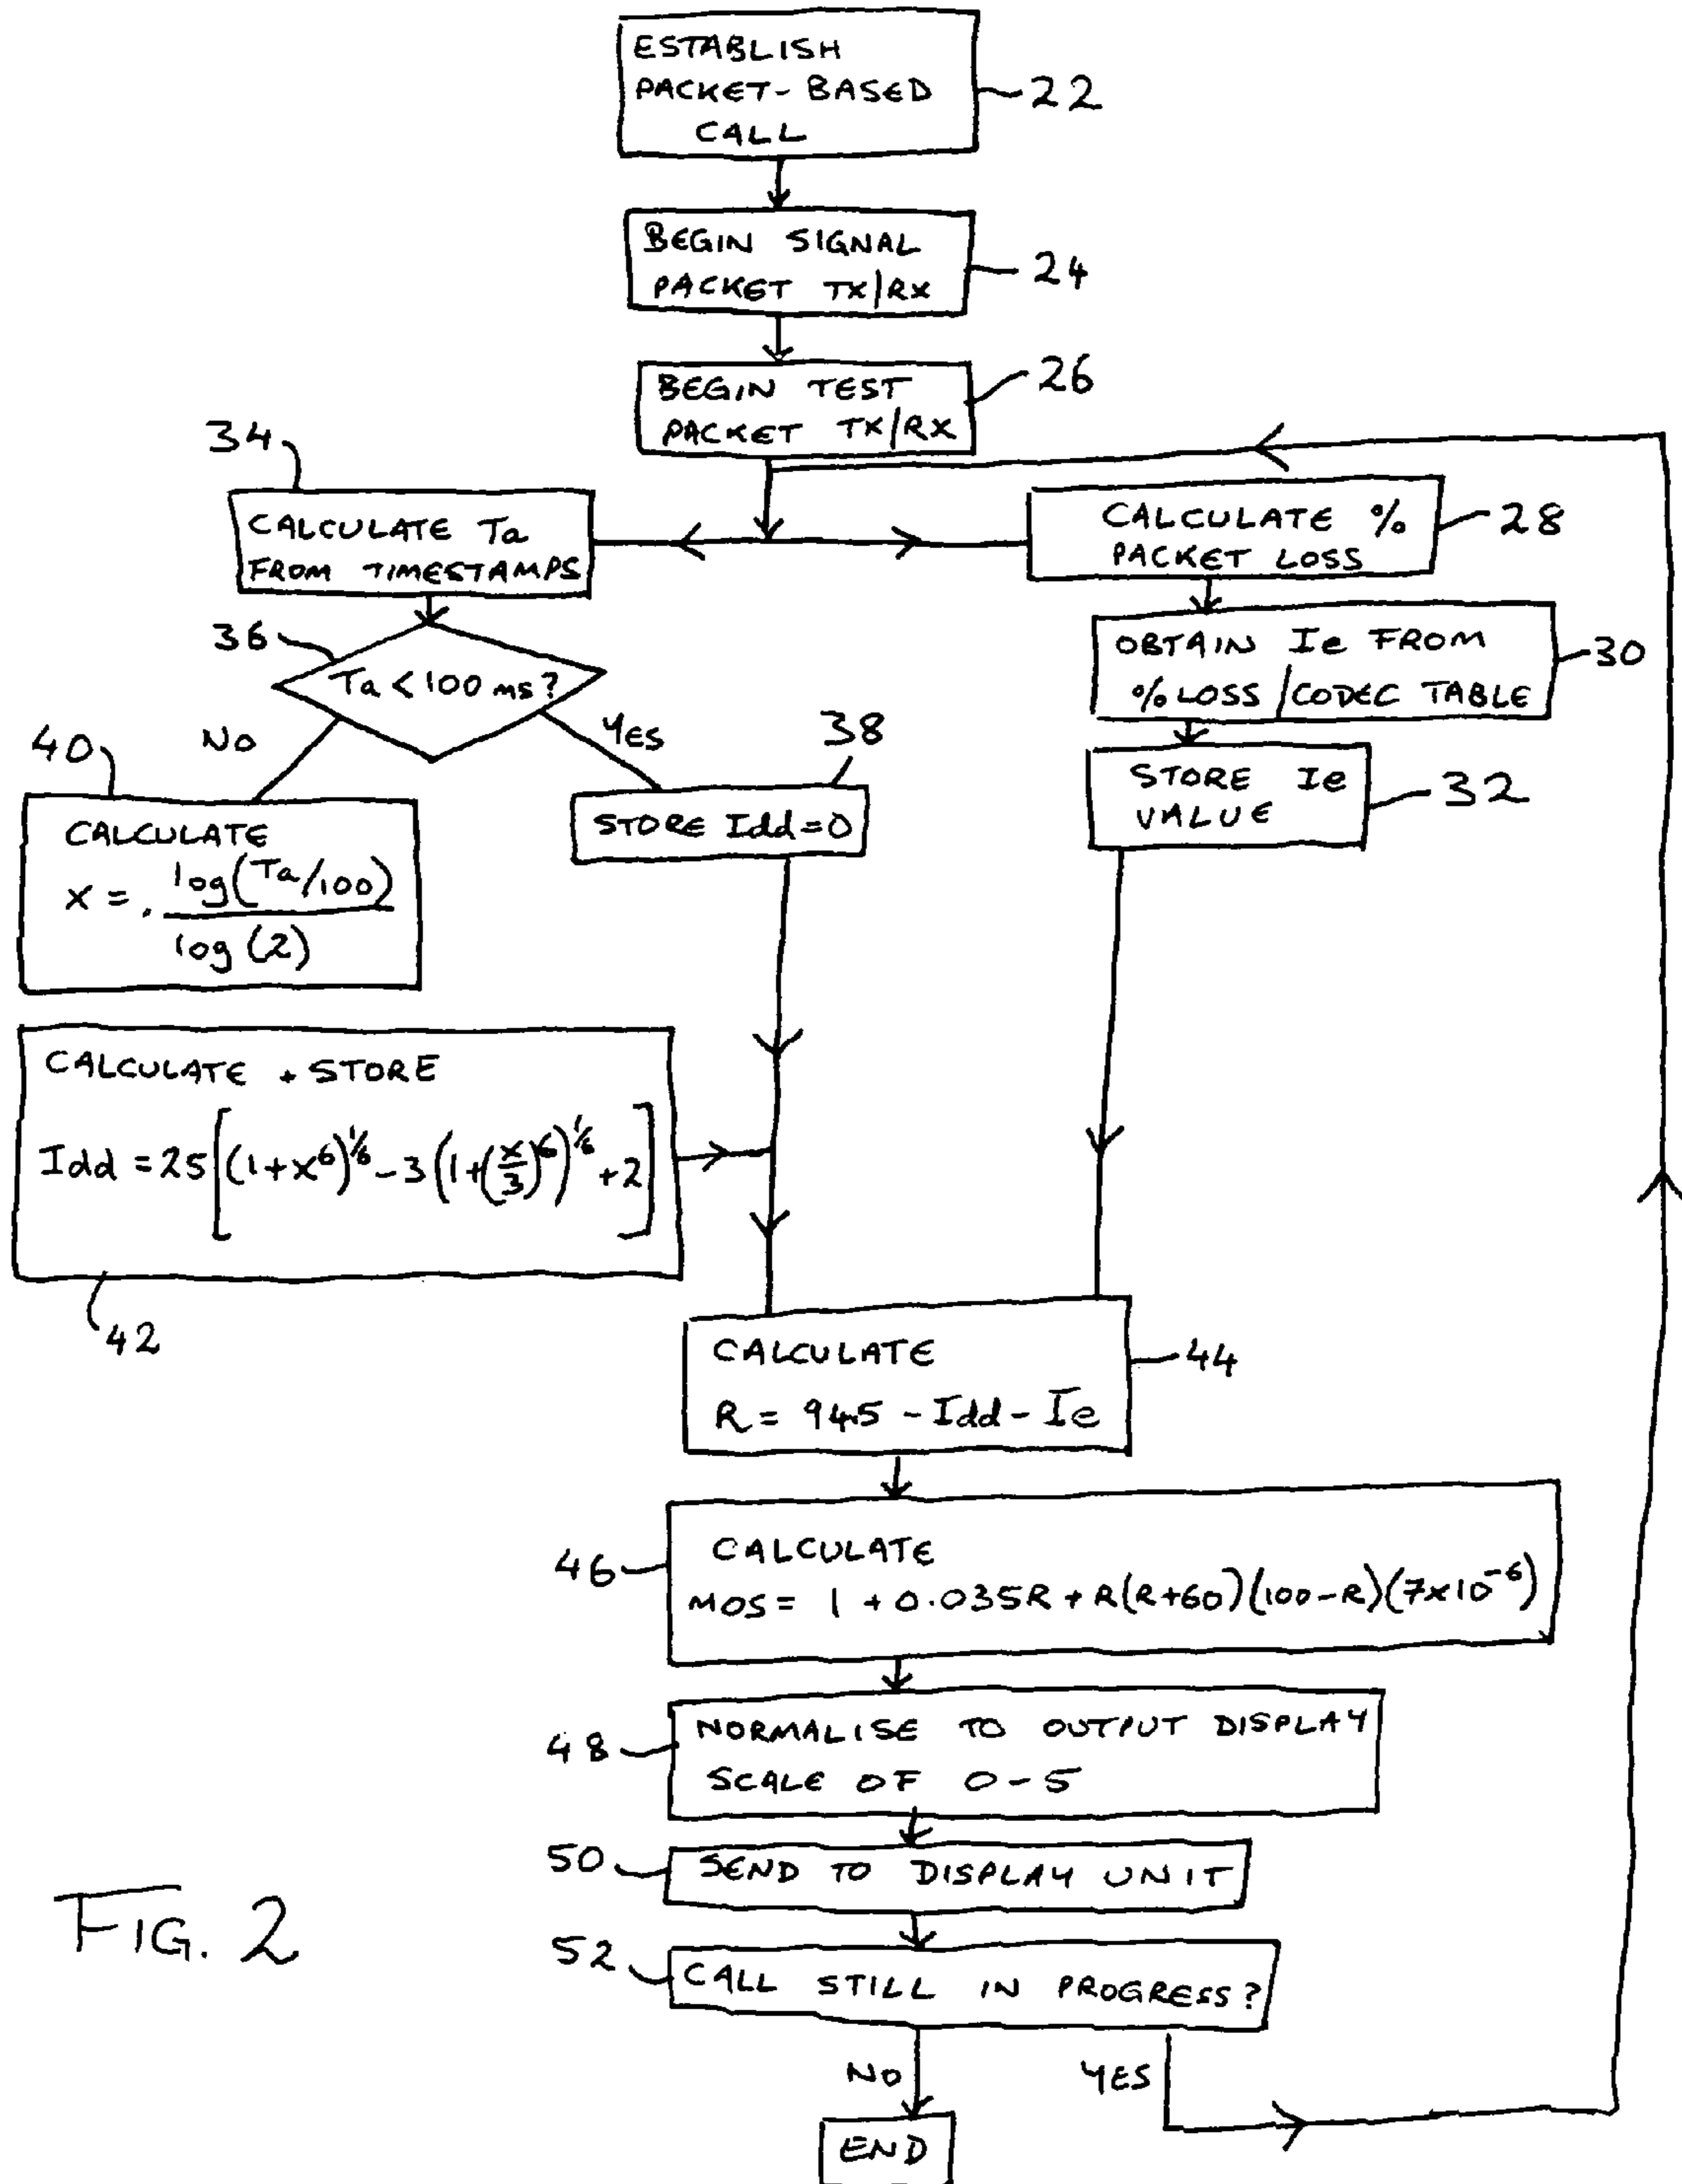 ESTABLISH
PACKET-BASED
CALL
22
BEGIN SIGNAL
PACKET TX/RX
24
BEGIN TEST
PACKET TX/RX
26
34
CALCULATE Ta
FROM TIMESTAMPS
CALCULATE %
PACKET LOSS
28
36
Ta < 100 ms?
OBTAIN Ie FROM
% LOSS / CODEC TABLE
30
NO
YES
40
38
CALCULATE
x = . log(Ta/100)
log (2)
STORE Idd = 0
STORE Ie
VALUE
32
CALCULATE + STORE
Idd = 25[(1+x^6)^1/6 - 3(1+(x/3)^6)^1/6 + 2]
42
CALCULATE
R = 94.5 - Idd - Ie
44
46
CALCULATE
MOS = 1 + 0.035R + R(R+60)(100-R)(7x10^-6)
48
NORMALISE TO OUTPUT DISPLAY
SCALE OF 0-5
50
SEND TO DISPLAY UNIT
52
CALL STILL IN PROGRESS?
NO
YES
END
FIG. 2